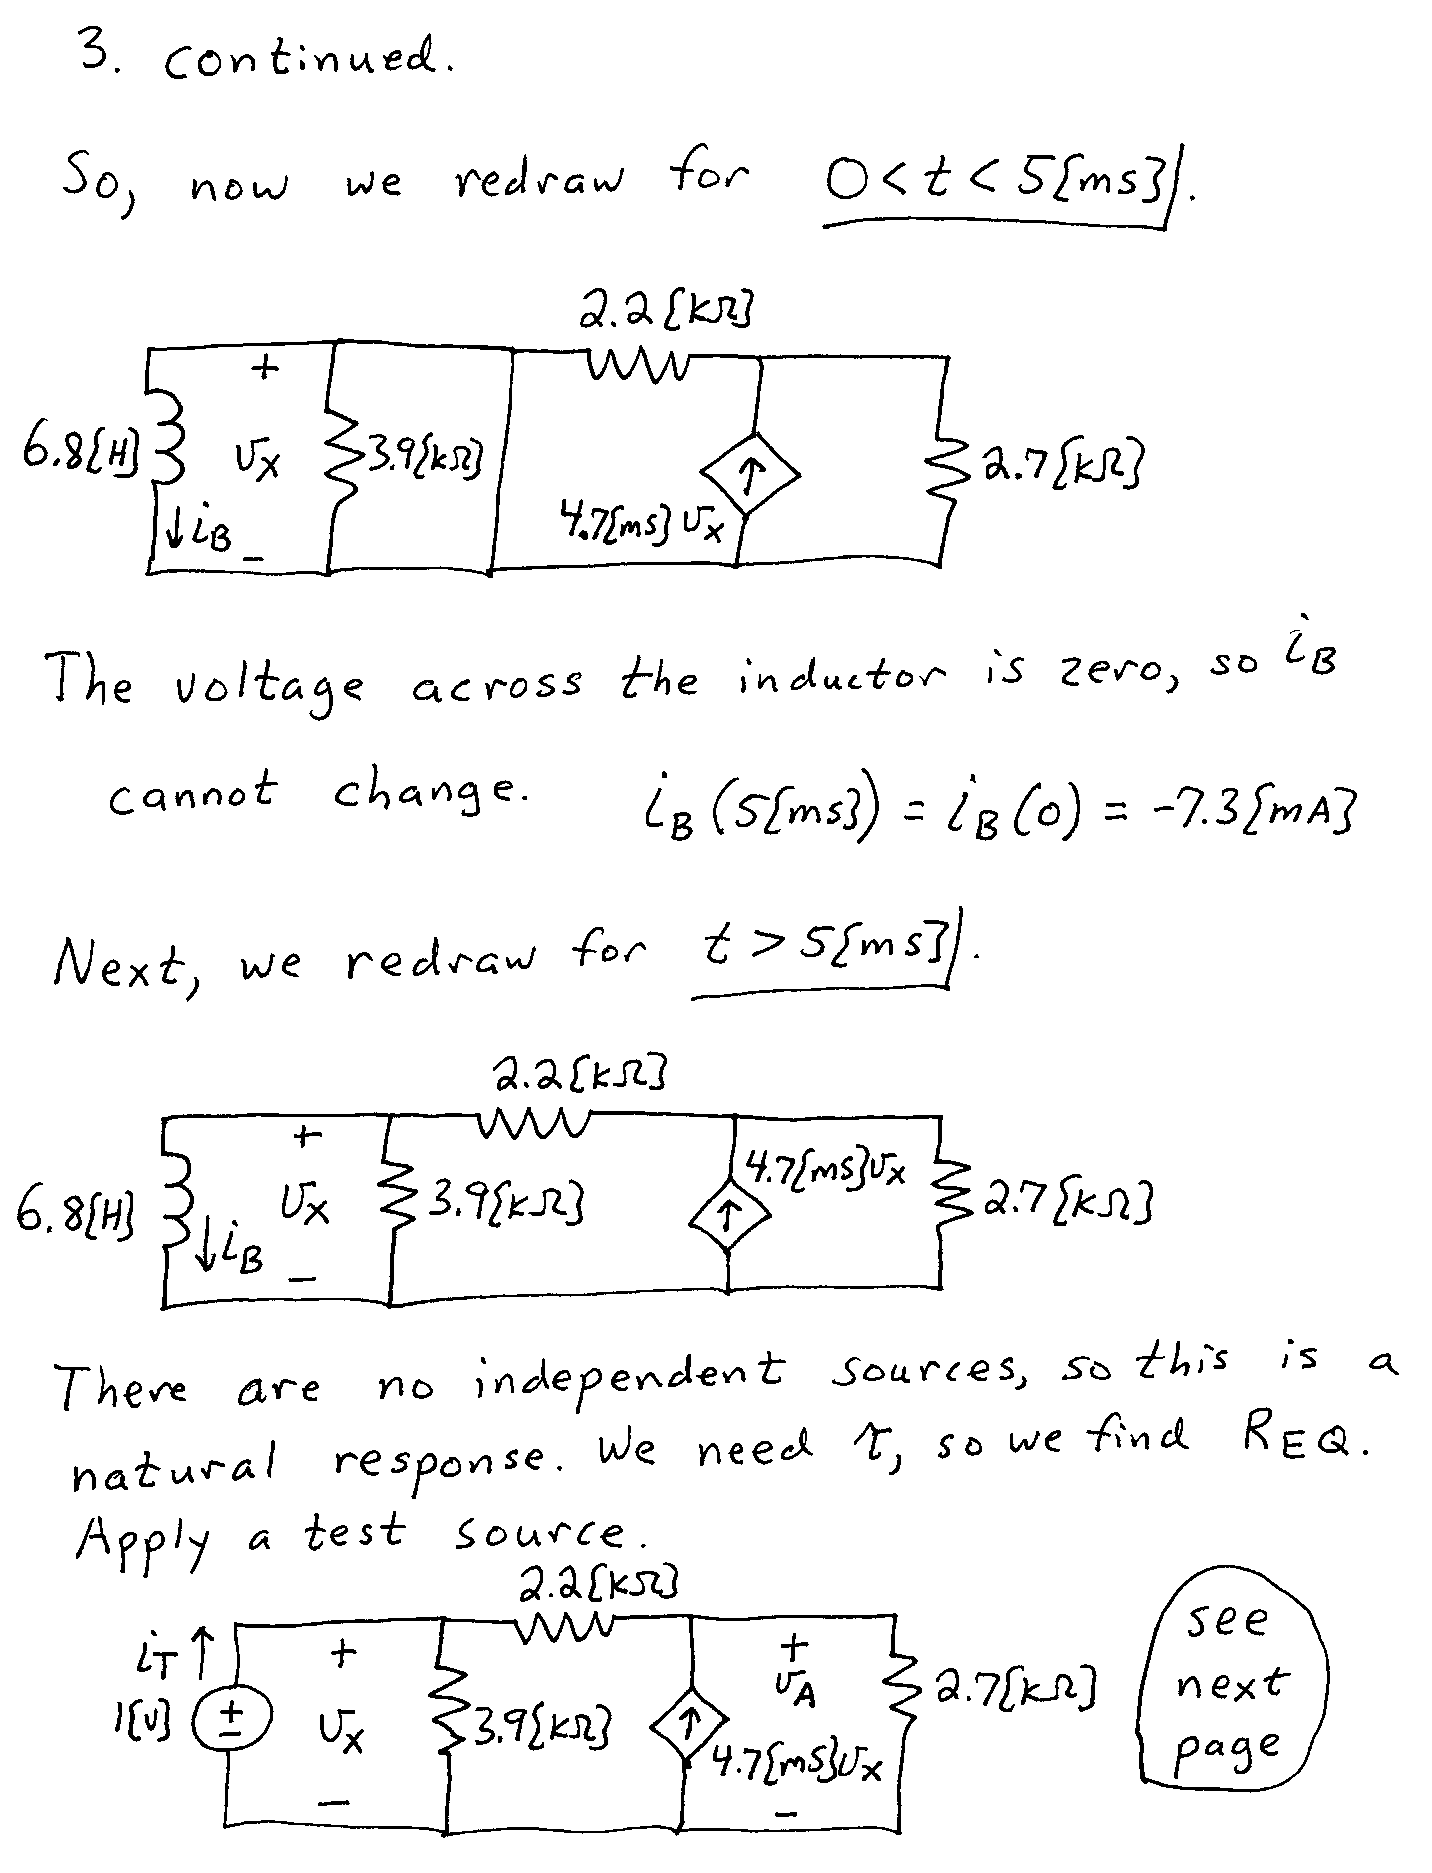 3. continued.
So, now we redraw for 0<t<5[ms].
2.2[kΩ]
+
6.8[H] vX 3.9[kΩ] 2.7[kΩ]
4.7[mS]vX
↓iB -
The voltage across the inductor is zero, so iB
cannot change. iB(5[ms]) = iB(0) = -7.3[mA]
Next, we redraw for t>5[ms].
2.2[kΩ]
+ 4.7[mS]vX
6.8[H] vX 3.9[kΩ] 2.7[kΩ]
↓iB -
There are no independent sources, so this is a
natural response. We need τ, so we find REQ.
Apply a test source.
2.2[kΩ]
iT ↑ + +
vA 2.7[kΩ]
1[V] + - vX 3.9[kΩ]
4.7[mS]vX
- -
see
next
page